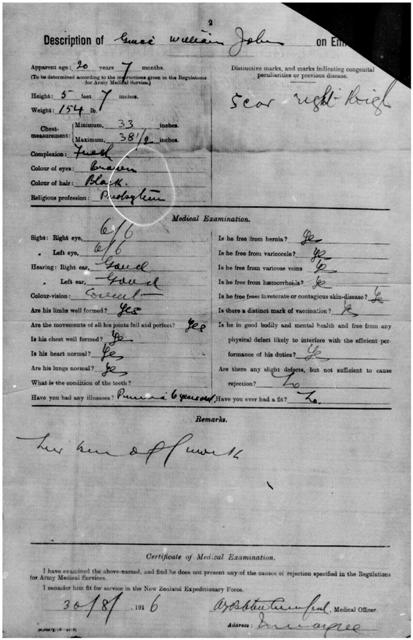 2
Description of William John on En
Apparent age: 20 years 7 months.
(To be determined according to the instructions given in the Regulations for Army Medical Service.)
Height: 5 feet 7 inches.
Weight: 154 lb.
Chest measurement: Minimum, 33 inches.
Maximum, 38 1/2 inches.
Complexion: Fresh
Colour of eyes: Brown
Colour of hair: Black.
Religious profession:
Distinctive marks, and marks indicating congenital peculiarities or previous disease.
Scar right thigh
Medical Examination.
Sight: Right eye, 6/6
" Left eye, 6/6
Hearing: Right ear, Good
" Left ear, Good
Colour-vision: Correct
Are his limbs well formed? Yes
Are the movements of all his joints full and perfect? Yes
Is his chest well formed? Yes
Is his heart normal? Yes
Are his lungs normal? Yes
What is the condition of the teeth?
Have you had any illnesses? 6 years
Is he free from hernia? Yes
Is he free from varicocele? Yes
Is he free from varicose veins? Yes
Is he free from hæmorrhoids? Yes
Is he free from inveterate or contagious skin-disease? Yes
Is there a distinct mark of vaccination? Yes
Is he in good bodily and mental health and free from any physical defect likely to interfere with the efficient performance of his duties? Yes
Are there any slight defects, but not sufficient to cause rejection? No
Have you ever had a fit? No.
Remarks.
Certificate of Medical Examination.
I have examined the above-named, and find he does not present any of the causes of rejection specified in the Regulations for Army Medical Services.
I consider him fit for service in the New Zealand Expeditionary Force.
30/8/1916
, Medical Officer.
Address: